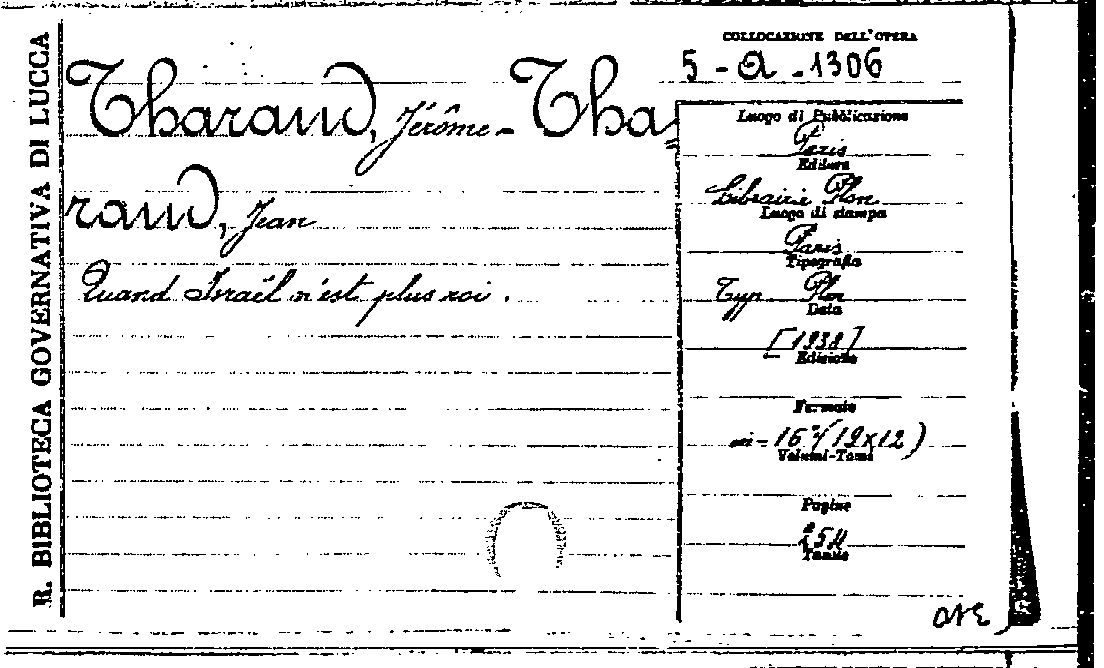 R. BIBLIOTECA GOVERNATIVA DI LUCCA
Tharaud, Jérôme - Tha=
raud, Jean
Quand Israël n'est plus roi.
COLLOCAZIONE DELL'OPERA
5 - a - 1306
Luogo di Pubblicazione
Paris
Editore
Librairie Plon
Luogo di stampa
Paris
Tipografia
Typ Plon
Data
Edizione
Formato
in-16°(19x12)
Volumi-Tomi
Pagine
Tavole